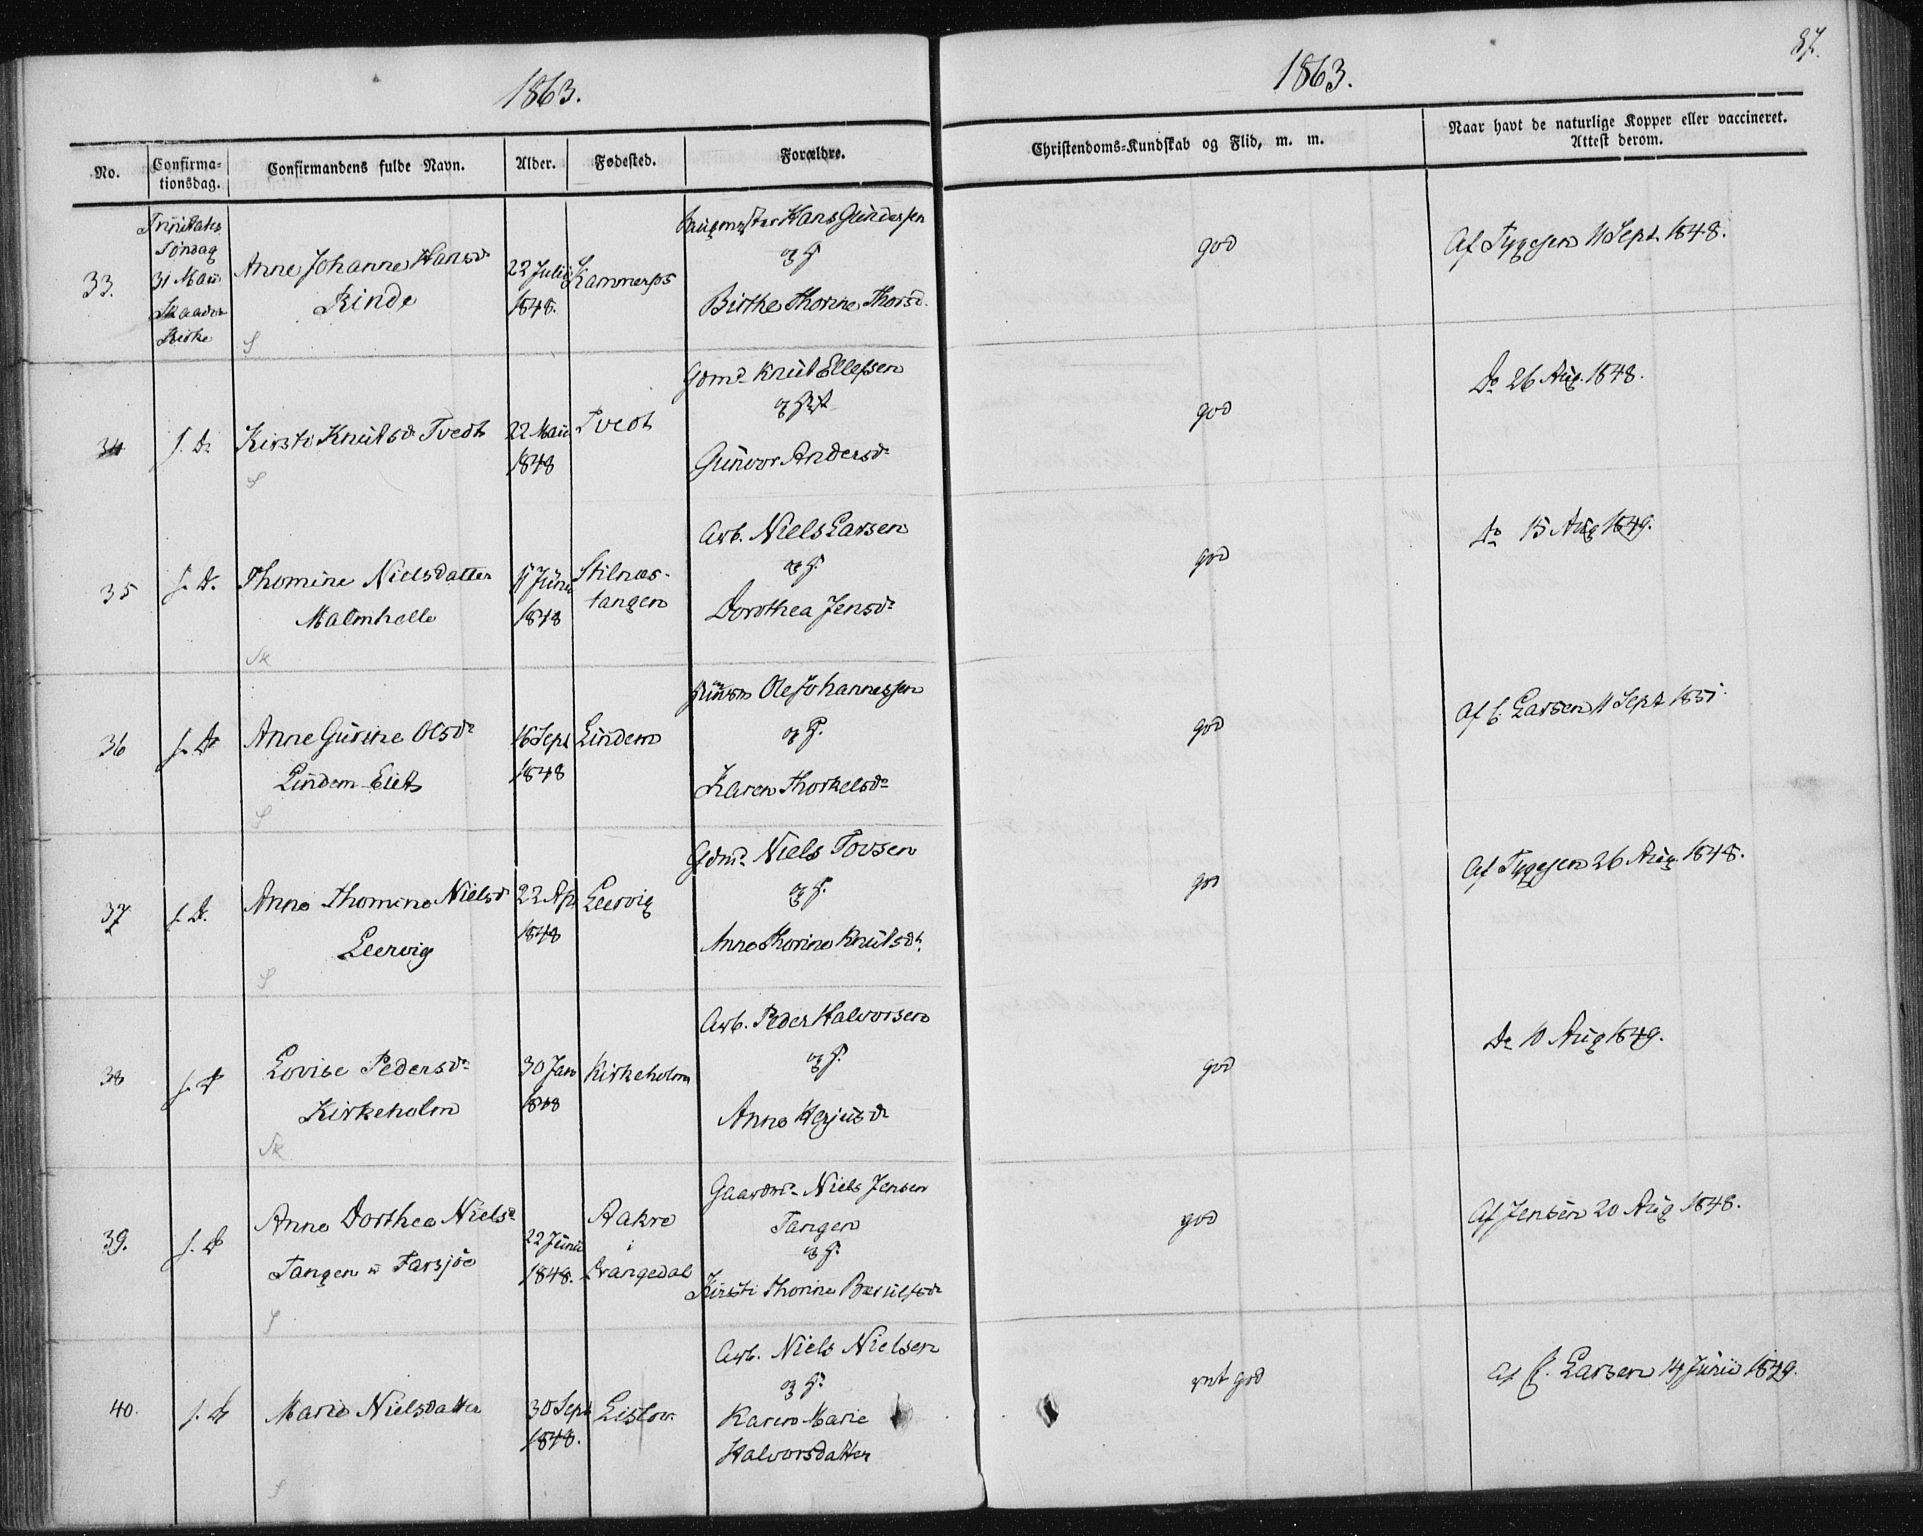 1863.
1863.
87.
No.
Confirma-
tionsdag.
Confirmandens fulde Navn.
Alder.
Fødested.
Forældre.
Christendoms-Kundskab og Flid, m. m.
Naar havt de naturlige Kopper eller vaccineret.
Attest derom.
33.
Trinitatis
Søndag
31 Maii
Skaadø
Kirke
Anne Johanne Hansd.
Rinde
S
22 Julii
1848.
Kammerfos
Hans Gundersen
og H.
Birthe Thorine Thorsd.
god
Af Tygesen 11 Sept. 1848.
34
s. D.
Kirsti Knutsd. Tvedt
S
22 Maii
1848
Tvedt
Gdmd. Knut Ellefsen
og
Gunvor Andersd.
god
Do 26 Aug. 1848.
35
s. D.
Thomine Nielsdatter
Malmhelle
Sk
11 Juni
1848
Stilnæs-
tangen
Arb. Niels Larsen
og H.
Dorothea Jensd.
god
Do 15 Aug 1849.
36
s. D.
Anne Gurine Olsd.
Lindem Eiet
S
16 Sept
1848
Lindem
Ole Johannessen
og H.
Karen Thorkelsd.
god
Af C. Larsen 11 Sept 1851.
37
s. D.
Anne Thomine Nielsd.
Leervig
S
22 Ap
1848
Leervig
Gdmd. Niels Tovsen
og H.
Anne Thorine Knutsd.
god
Af Tygesen 26 Aug. 1848.
38
s. D.
Lovise Pedersd.
Kirkeholm
Sk
30 Jan
1848
Kirkeholm
Arb. Peder Halvorsen
og H.
Anne Herjusd.
god
Do 10 Aug 1849.
39.
s. D.
Anne Dorthea Nielsd.
Tangen u Farsjøe
S
22 Junii
1848.
Aakre
i
Drangedal
Gaardmd. Niels Jensen
Tangen
og H.
Kirsti Thorine Bærulfsd.
god
Af Jensen 20 Aug 1848.
40.
s. D.
Marie Nielsdatter
S
30 Sept
1848.
Eislow
Arb. Niels Nielsen
og H.
Karen Marie
Halvorsdatter
mt god
Af C. Larsen 14 Junii 1849.